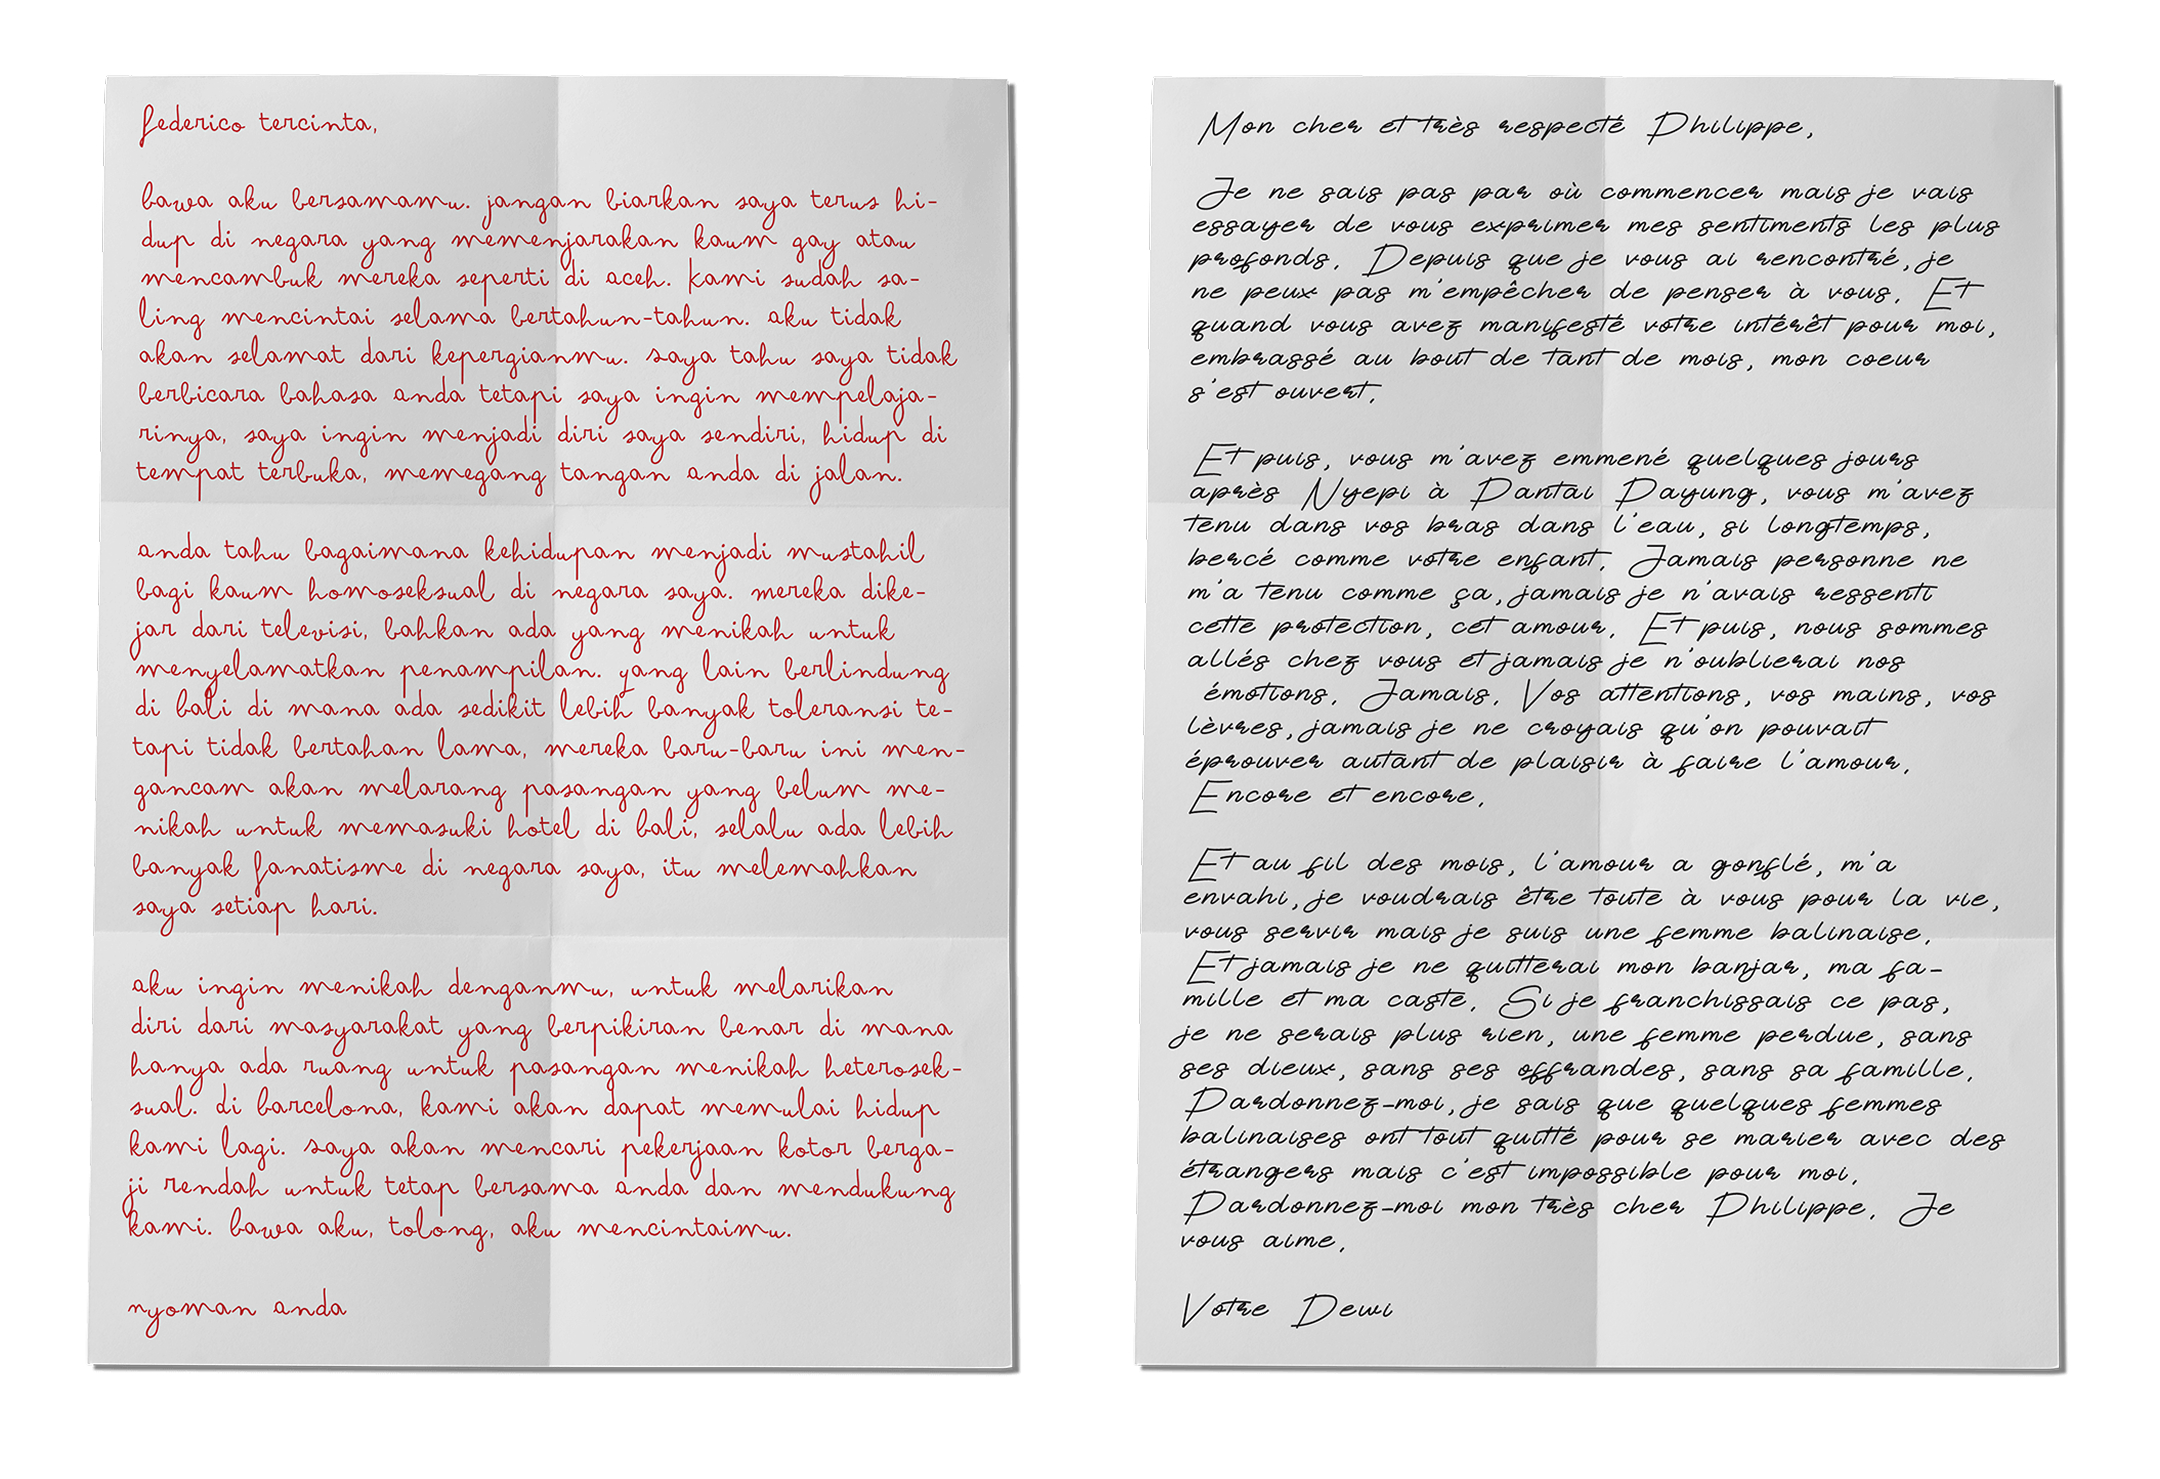 federico tercinta,
bawa aku bersamamu. jangan biarkan saya terus hi-
dup di negara yang memenjarakan kaum gay atau
mencambuk mereka seperti di aceh. kami sudah sa-
ling mencintai selama bertahun-tahun. aku tidak
akan selamat dari kepergianmu. saya tahu saya tidak
berbicara bahasa anda tetapi saya ingin mempelaja-
rinya, saya ingin menjadi diri saya sendiri, hidup di
tempat terbuka, memegang tangan anda di jalan.
anda tahu bagaimana kehidupan menjadi mustahil
bagi kaum homoseksual di negara saya. mereka dike-
jar dari televisi, bahkan ada yang menikah untuk
menyelamatkan penampilan. yang lain berlindung
di bali di mana ada sedikit lebih banyak toleransi te-
tapi tidak bertahan lama, mereka baru-baru ini men-
gancam akan melarang pasangan yang belum me-
nikah untuk memasuki hotel di bali, selalu ada lebih
banyak fanatisme di negara saya, itu melemahkan
saya setiap hari.
aku ingin menikah denganmu, untuk melarikan
diri dari masyarakat yang berpikiran benar di mana
hanya ada ruang untuk pasangan menikah heterosek-
sual. di barcelona, kami akan dapat memulai hidup
kami lagi. saya akan mencari pekerjaan kotor berga-
ji rendah untuk tetap bersama anda dan mendukung
kami. bawa aku, tolong, aku mencintaimu.
nyoman anda
Mon cher et très respecté Philippe,
Je ne sais pas par où commencer mais je vais
essayer de vous exprimer mes sentiments les plus
profonds. Depuis que je vous ai rencontré, je
ne peux pas m'empêcher de penser à vous. Et
quand vous avez manifesté votre intérêt pour moi,
embrassé au bout de tant de mois, mon coeur
s'est ouvert.
Et puis, vous m'avez emmené quelques jours
après Nyepi à Pantai Payung, vous m'avez
tenu dans vos bras dans l'eau, si longtemps,
bercé comme votre enfant. Jamais personne ne
m'a tenu comme ça, jamais je n'avais ressenti
cette protection, cet amour. Et puis, nous sommes
allés chez vous et jamais je n'oublierai nos
émotions. Jamais. Vos attentions, vos mains, vos
lèvres, jamais je ne croyais qu'on pouvait
éprouver autant de plaisir à faire l'amour.
Encore et encore.
Et au fil des mois, l'amour a gonflé, m'a
envahi, je voudrais être toute à vous pour la vie,
vous servir mais je suis une femme balinaise.
Et jamais je ne quitterai mon banjar, ma fa-
mille et ma caste. Si je franchissais ce pas,
je ne serais plus rien, une femme perdue, sans
ses dieux, sans ses offrandes, sans sa famille.
Pardonnez-moi, je sais que quelques femmes
balinaises ont tout quitté pour se marier avec des
étrangers mais c'est impossible pour moi.
Pardonnez-moi mon très cher Philippe. Je
vous aime.
Votre Dewi